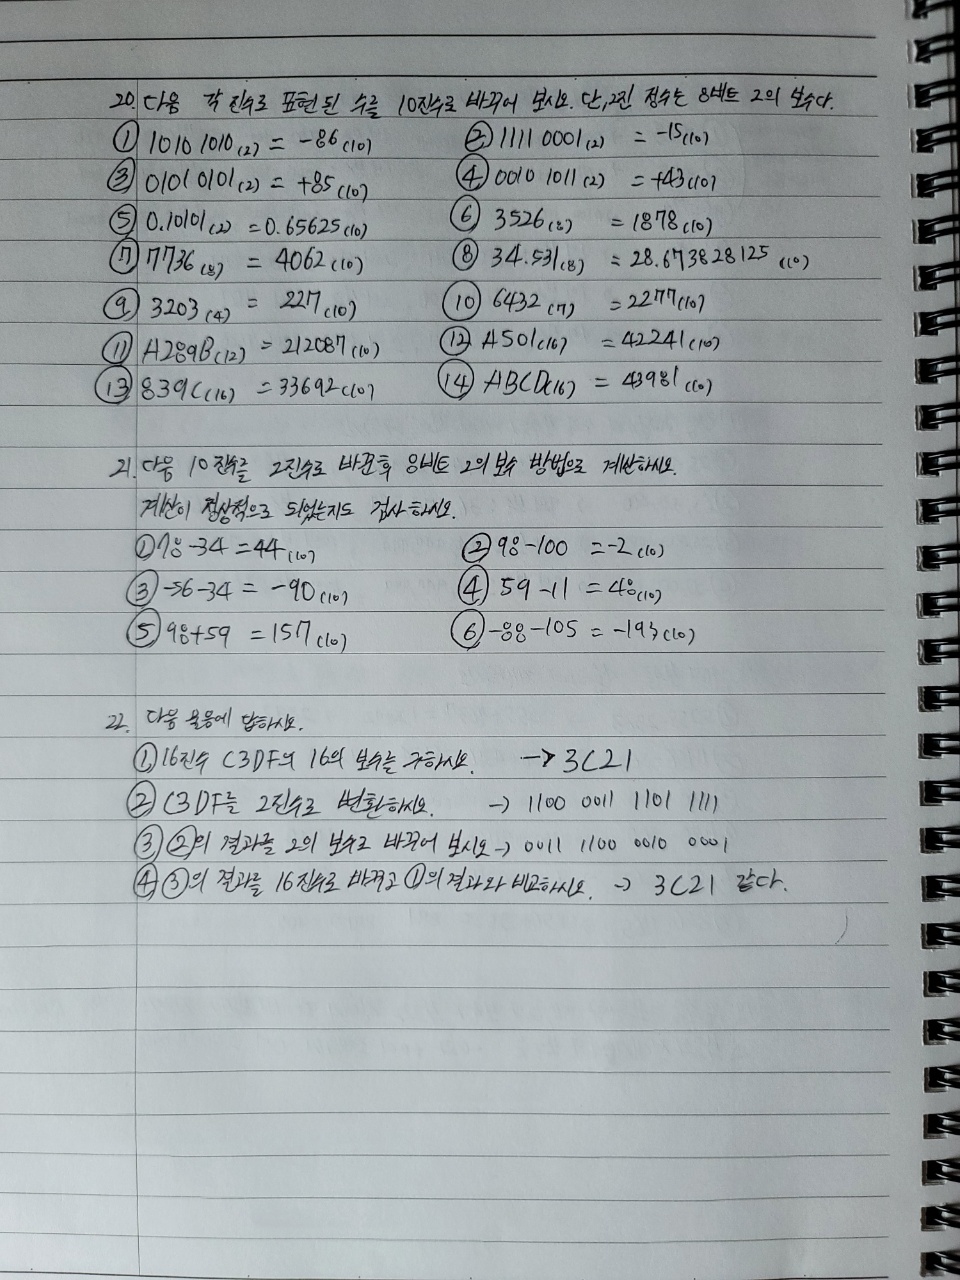 20. 다음 각 진수로 표현된 수를 10진수로 바꾸어 보시오. 단, 2진 정수는 8비트 2의 보수다.
① 1010 1010(2) = -86(10) ② 1111 0001(2) = -15(10)
③ 0101 0101(2) = +85(10) ④ 0010 1011(2) = +43(10)
⑤ 0.10101(2) = 0.65625(10) ⑥ 3526(8) = 1878(10)
⑦ 7736(8) = 4062(10) ⑧ 34.531(8) = 28.673828125(10)
⑨ 3203(4) = 227(10) ⑩ 6432(7) = 2277(10)
⑪ A289B(12) = 212087(10) ⑫ A501(16) = 42241(10)
⑬ 839C(16) = 33692(10) ⑭ ABCD(16) = 43981(10)
21. 다음 10진수를 2진수로 바꾼후 8비트 2의 보수 방법으로 계산하시오.
계산이 정상적으로 되었는지도 검사하시오.
① 78-34 = 44(10) ② 98-100 = -2(10)
③ -56-34 = -90(10) ④ 59-11 = 48(10)
⑤ 98+59 = 157(10) ⑥ -88-105 = -193(10)
22. 다음 물음에 답하시오.
① 16진수 C3DF의 16의 보수를 구하시오. → 3C21
② C3DF를 2진수로 변환하시오. → 1100 0011 1101 1111
③ ②의 결과를 2의 보수로 바꾸어 보시오 → 0011 1100 0010 0001
④ ③의 결과를 16진수로 바꾸고 ①의 결과와 비교하시오. → 3C21 같다.